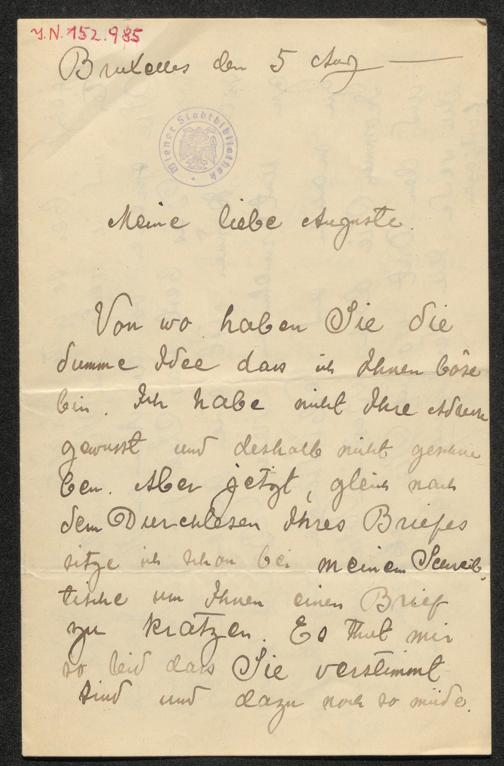 J.N. 152.985
Bruxelles den 5 Aug
Wiener Stadtbibliothek
Meine liebe Auguste.
Von wo haben Sie die
dumme Idee dass ich Ihnen böse
bin. Ich habe nicht Ihre Adresse
gewusst und deshalb nicht geschrie
ben. Aber jetzt, gleich nach
dem Durchlesen Ihres Briefes
sitze ich schon bei meinem Schreib
tische um Ihnen einen Brief
zu kratzen. Es thut mir
so leid dass Sie verstimmt
sind und dazu noch so müde.